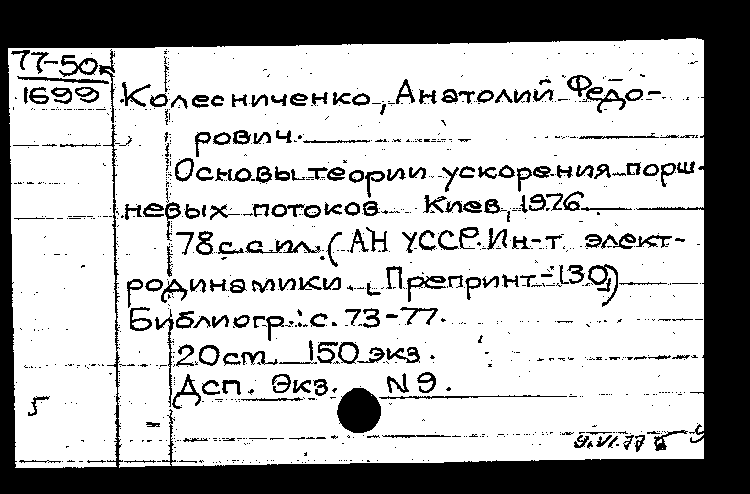 77-50
1699
Колесниченко, Анатолий Федо-
рович.
Основы теории ускорения порш-
невых потоков. Киев, 1976.
78 с. с ил. (АН УССР. Ин-т элект-
родинамики. Препринт-130)
Библиогр.: с. 73-77.
20 см. 150 экз.
Дсп. Экз. N 9.
5
9.VI.77